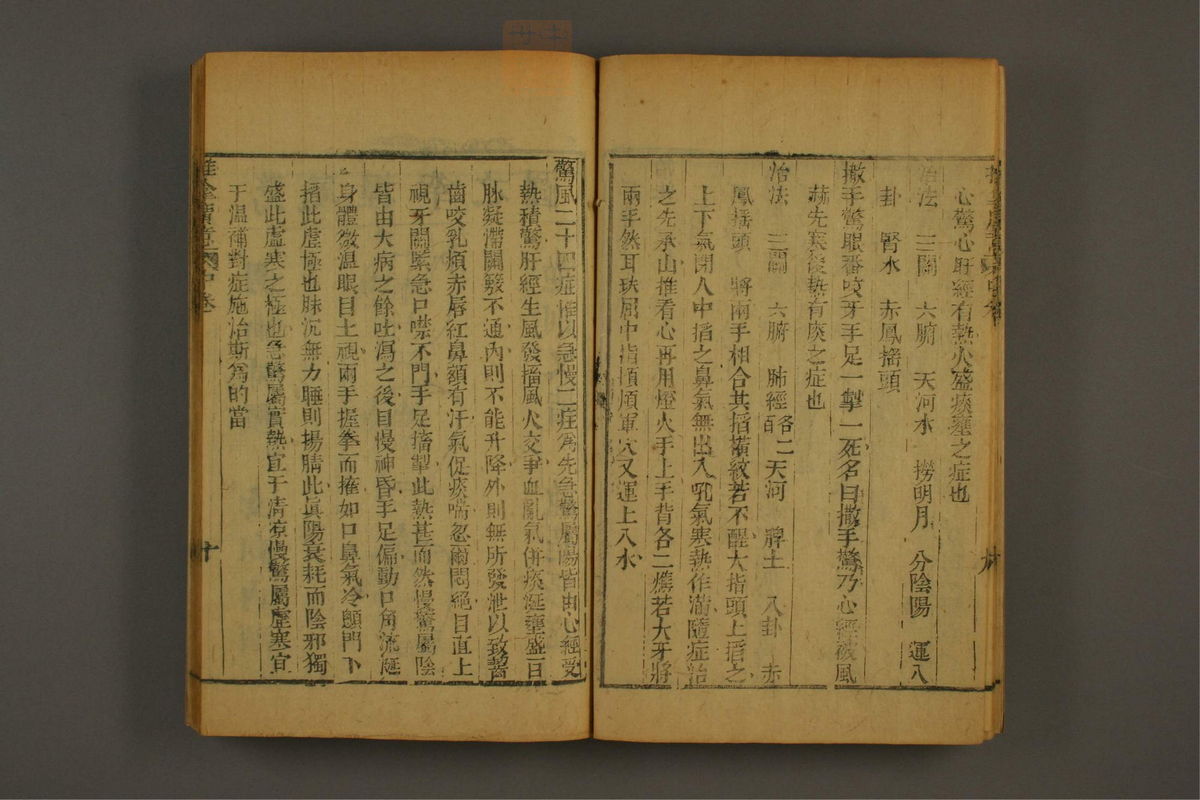 心驚心肝經有熱火盛痰壅之症也
治法 三關 六腑 天河水 撈明月 分陰陽 運八
卦 腎水 赤鳳搖頭
撒手驚眼番咬牙手足一掣一死名曰撒手驚乃心經被風
先寒後熱有痰之症也
治法 三關 六腑 肺經各二百 天河 脾土 八卦 赤
鳳搖頭 將兩手相合其掐橫紋若不醒大指頭上掐之
上下氣閉人中掐之鼻氣無出入吼氣寒熱作渴隨症治
之先承山推看心再用燈火手上手背各二燋若大牙將
兩手然耳珠屈中指揁順運穴又運上入水
驚風二十四症惟以急慢二症為先急驚屬陽皆由心經受
熱積驚肝經生風發搐風火交爭血亂氣併痰涎壅盛百
脉凝滯關竅不通內則不能升降外則無所發泄以致
齒咬乳煩赤唇紅鼻額有汗氣促痰喘忽爾悶絕目直上
視牙關緊急口噤不門手足搐掣此熱甚而然慢驚屬陰
皆由大病之餘吐瀉之後目慢神昏手足偏動口角流涎
身體微温眼目上視兩手握拳而搐如口鼻氣冷顖門下
搐此虛極也脉沉無力睡則揚睛此真陽衰耗而陰邪獨
盛此虛寒之極也急驚屬實熱宜于清凉慢驚屬虛寒宜
于温補對症施治斯為的當
中卷
十